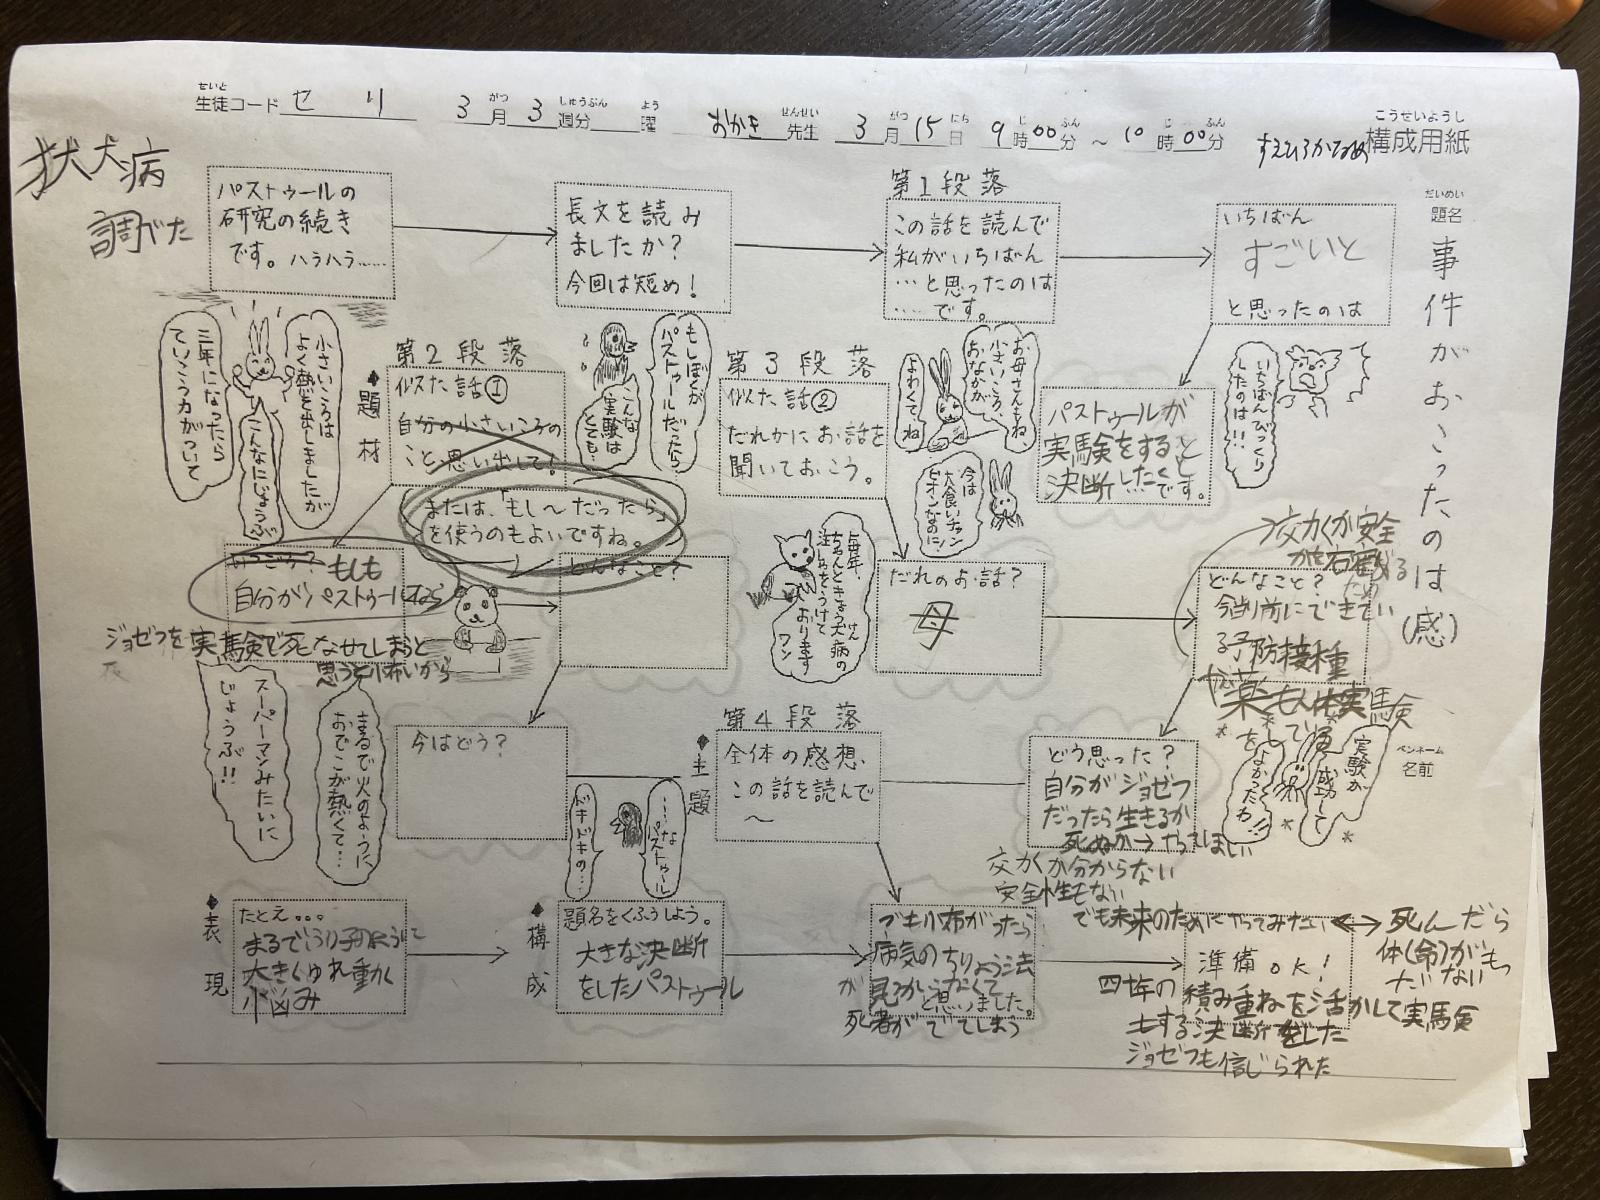 せいと
生徒コード せり 3月 3週分 曜 おかき先生 3月15日 9時00分 ~ 10時00分
がつ しゅうぶん よう せんせい がつ にち じ ふん じ ふん
こうせいようし
すえひろかなめ 構成用紙
だいめい
題名
事件がおこったのは(感)
ペンネーム
名前
狂犬病
調べた
パストゥールの
研究の続き
です。ハラハラ……
長文を読み
ましたか?
今回は短め!
第1段落
この話を読んで
私がいちばん
…と思ったのは
……です。
いちばん
すごいと
と思ったのは
いちばんびっくり
したのは!!
パストゥールが
実験をすると
決断したことです。
お母さんもね、
小さいころ、
おなかが
よわくてね
今は
大食いチャン
ピオンなのに!
第3段落
似た話②
だれかにお話を
聞いておこう。
もしぼくが
パストゥールだったら
こんな
実験は
とても…
第2段落
◆題材
似た話①
自分の小さいころの
こと思い出して!
または、「もし〜だったら」
を使うのもよいですね。
小さいころは
よく熱を出しましたが
こんなにじょうぶ
三年になったら
ていこう力がついて
いつごろ?
もしも
自分がパストゥールなら
ジョゼフを実験で死なせてしまうと
思うと怖いから
どんなこと?
毎年、
ちゃんときょう犬病の
注しゃをうけて
おります
ワン
だれのお話?
母
どんなこと?
今当り前にできてい
る予防接種
薬も人体実験
スーパーマンみたいに
じょうぶ!!
まるで火のように
おでこが熱くて…
今はどう?
◆主題
第4段落
全体の感想、
この話を読んで
〜
……な
パストゥール
ドキドキの…
どう思った?
自分がジョゼフ
だったら生きるか
死ぬか→
効くか分からない
安全性もない
でも未来のためにやってみたい
死んだら
体(命)がも
実験が
成功して
よかったわ!!
◆表現
たとえ。。。
まるでふり子のように
大きくゆれ動く
◆構成
題名をくふうしよう。
大きな決断
をしたパストゥール
でも怖がったら
病気のちりょう法
が見つからなくて
死者がでてしまう
と思いました。
準備OK!
積み重ねを活かして実験
する決断をした
ジョゼフも信じられた